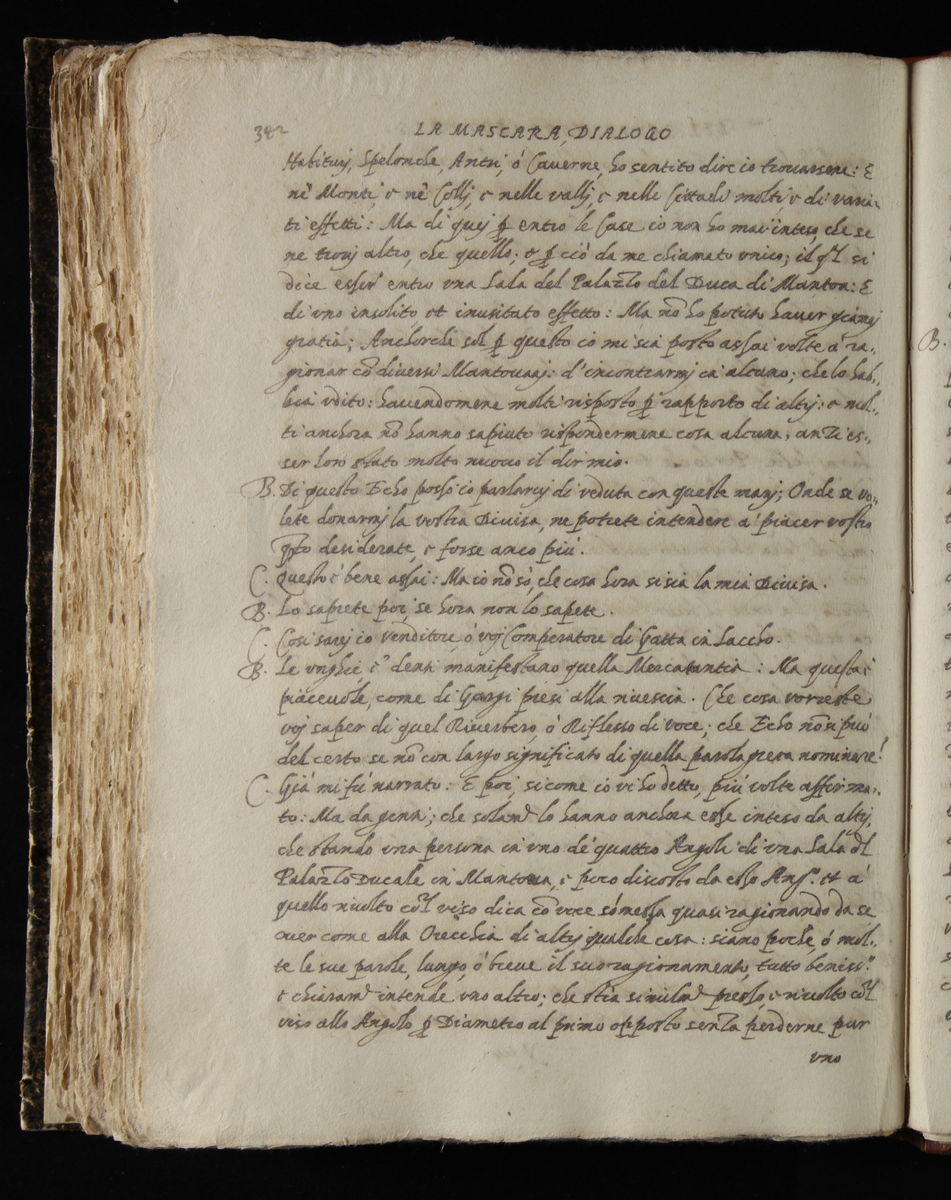 382 LA MASCARA, DIALOGO
Habituri, Spelonche, Antri, ó Caverne, ho sentito dire io trouarsene: E
nè Monti, e nè Collj, e nelle vallj, e nelle Cittadi molti e di varia-
ti effetti: Ma di quej ꝑ entro le Case io non ho mai inteso, che se
ne trouj altro, che quello; et ꝑ ciò da me chiamato vnico; il ql si
dice esser entro vna Sala del Palazzo del Duca di Mantoa: E
di vno insolito et inusitato effetto: Ma nõ ho potuto hauer giamaj
gratia; Anchorche sol ꝑ questo io mi sia posto assai volte à ra-
gionar cõ diuersi Mantouanj: d'incontrarmj in alcuno; che lo hab-
bia vdito: hauendomene molti risposto ꝑ rapporto di altrj: e mol-
ti anchora nõ hanno saputo rispondermene cosa alcuna, anzi es-
ser loro stato molto nuouo il dir mio.
B. Di questo Echo posso io parlarvj di veduta con queste manj; Onde se vo-
lete donarmj la vostra Diuisa, ne potrete intendere à piacer vostro
qto desiderate, e forse anco più.
C. Questo è bene assai: Ma io nõ sò, che cosa hora si sia la mia Diuisa.
B. Lo saprete poi, se hora non lo sapete.
C. Cosi sarej io venditore, ò voj Comperatore di Gatta in Saccho.
B. Le vnghie, e i denti manifestano quella Mercatantia: Ma questa è
piaceuole, come di presi alla riuescia. Che cosa vorreste
voj saper di quel Riuerbero, ò Riflesso di voce; che Echo nõ si può
del certo, se nõ con largo significato di quella parola greca nominare?
C. Già mi fù narrato: E poi, sicome io vi ho detto, più volte afferma-
to: Ma da genti; che solamte lo hanno anchora esse inteso da altrj,
che stando vna persona in vno de' quattro Angoli di vna Sala dl
Palazzo Ducale in Mantoua, e poco discosto da esso Angº. et à
quello riuolto cõl viso dica cõ voce sõmessa quasi ragionando da se
ouer come alla Orecchia di altrj qualche cosa: siano poche, ò mol-
te le sue parole, lungo, ò breue il suo ragionamento, tutto beniss.º
e chiaramte intende vno altro; che stia similmte presso, e riuolto cõl
viso allo Angolo ꝑ Diametro al primo opposto senza perderne pur
vno
B.